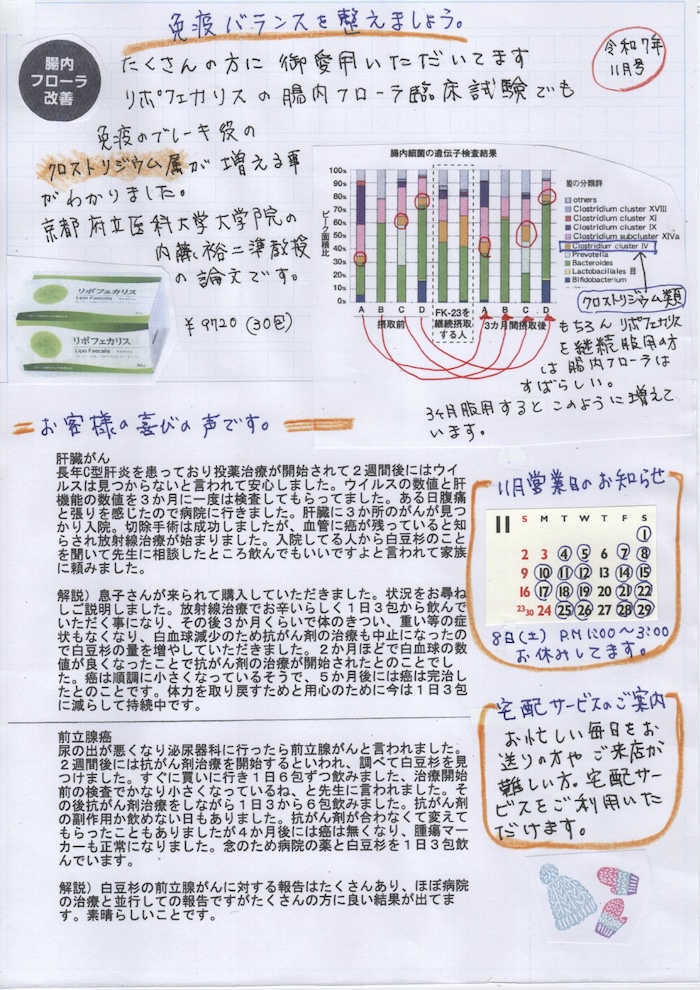 免疫バランスを整えましょう。
令和7年
11月号
腸内
フローラ
改善
たくさんの方に御愛用いただいてます
リポフェカリスの腸内フローラ臨床試験でも
免疫のブレーキ役の
クロストリジウム属が増える事
がわかりました。
京都府立医科大学大学院の
内藤裕二準教授
の論文です。
リポフェカリス
Lipo Faecalis
リポフェカリス
Lipo Faecalis
¥9720(30包)
腸内細菌の遺伝子検査結果
ピーク面積比
100%
90%
80%
70%
60%
50%
40%
30%
20%
10%
0%
A B C D
摂取前
FK-23を
継続摂取
する人
A B C D
3カ月間摂取後
菌の分類群
otners
Clostridium cluster XVIII
Clostridium cluster XI
Clostridium cluster IX
Clostridium subcluster XIVa
Clostridium cluster IV
Prevotella
Bacteroides
Lactobacillales 目
Bifidobacterium
クロストリジウム類
もちろんリポフェカリス
を継続服用の方
は腸内フローラは
すばらしい。
3ヶ月服用するとこのように増えて
います。
お客様の喜びの声です。
肝臓がん
長年C型肝炎を患っており投薬治療が開始されて2週間後にはウイ
ルスは見つからないと言われて安心しました。ウイルスの数値と肝
機能の数値を3か月に一度は検査してもらってました。ある日腹痛
と張りを感じたので病院に行きました。肝臓に3か所のがんが見つ
かり入院。切除手術は成功しましたが、血管に癌が残っていると知
らされ放射線治療が始まりました。入院してる人から白豆杉のこと
を聞いて先生に相談したところ飲んでもいいですよと言われて家族
に頼みました。
解説）息子さんが来られて購入していただきました。状況をお尋ね
しご説明しました。放射線治療でお辛いらしく1日3包から飲んで
いただく事になり、その後3か月くらいで体のきつい、重い等の症
状もなくなり、白血球減少のため抗がん剤の治療も中止になったの
で白豆杉の量を増やしていただきました。2か月ほどで白血球の数
値が良くなったことで抗がん剤の治療が開始されたとのことでし
た。癌は順調に小さくなっているそうで、5か月後には癌は完治し
たとのことです。体力を取り戻すためと用心のために今は1日3包
に減らして持続中です。
前立腺癌
尿の出が悪くなり泌尿器科に行ったら前立腺がんと言われました。
2週間後には抗がん剤治療を開始するといわれ、調べて白豆杉を見
つけました。すぐに買いに行き1日6包ずつ飲みました、治療開始
前の検査でかなり小さくなっているね、と先生に言われました。そ
の後抗がん剤治療をしながら1日3から6包飲みました。抗がん剤
の副作用か飲めない日もありました。抗がん剤が合わなくて変えて
もらったこともありましたが4か月後には癌は無くなり、腫瘍マー
カーも正常になりました。念のため病院の薬と白豆杉を1日3包飲
んでいます。
解説）白豆杉の前立腺がんに対する報告はたくさんあり、ほぼ病院
の治療と並行しての報告ですがたくさんの方に良い結果が出てま
す。素晴らしいことです。
11月営業日のお知らせ
11 S M T W T F S
1
2 3 4 5 6 7 8
9 10 11 12 13 14 15
16 17 18 19 20 21 22
23 30 24 25 26 27 28 29
8日(土) P.M1:00～3:00
お休みしてます。
宅配サービスのご案内
お忙しい毎日をお
送りの方やご来店が
難しい方。宅配サー
ビスをご利用いた
だけます。